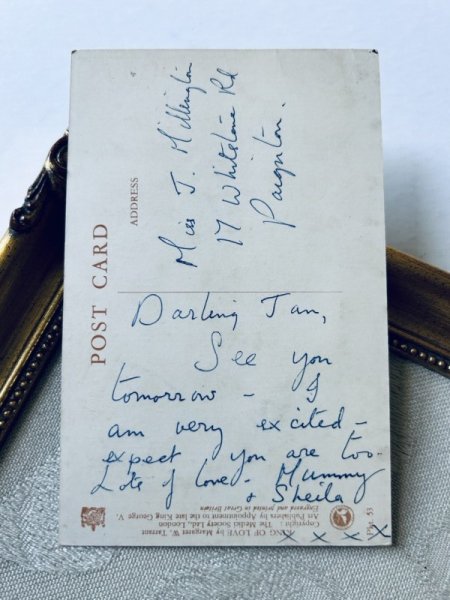 POST CARD
ADDRESS
Miss J. Millington
17 Whitstone Rd
Paignton.
Darling Jan,
See you
tomorrow - I
am very excited -
expect you are too.
Lots of love - Mummy
& Sheila
x x x x
KING OF LOVE by Margaret W. Tarrant
Copyright: The Medici Society Ltd., London
Art Publishers by Appointment to the late King George V.
Engraved and printed in Great Britain
53